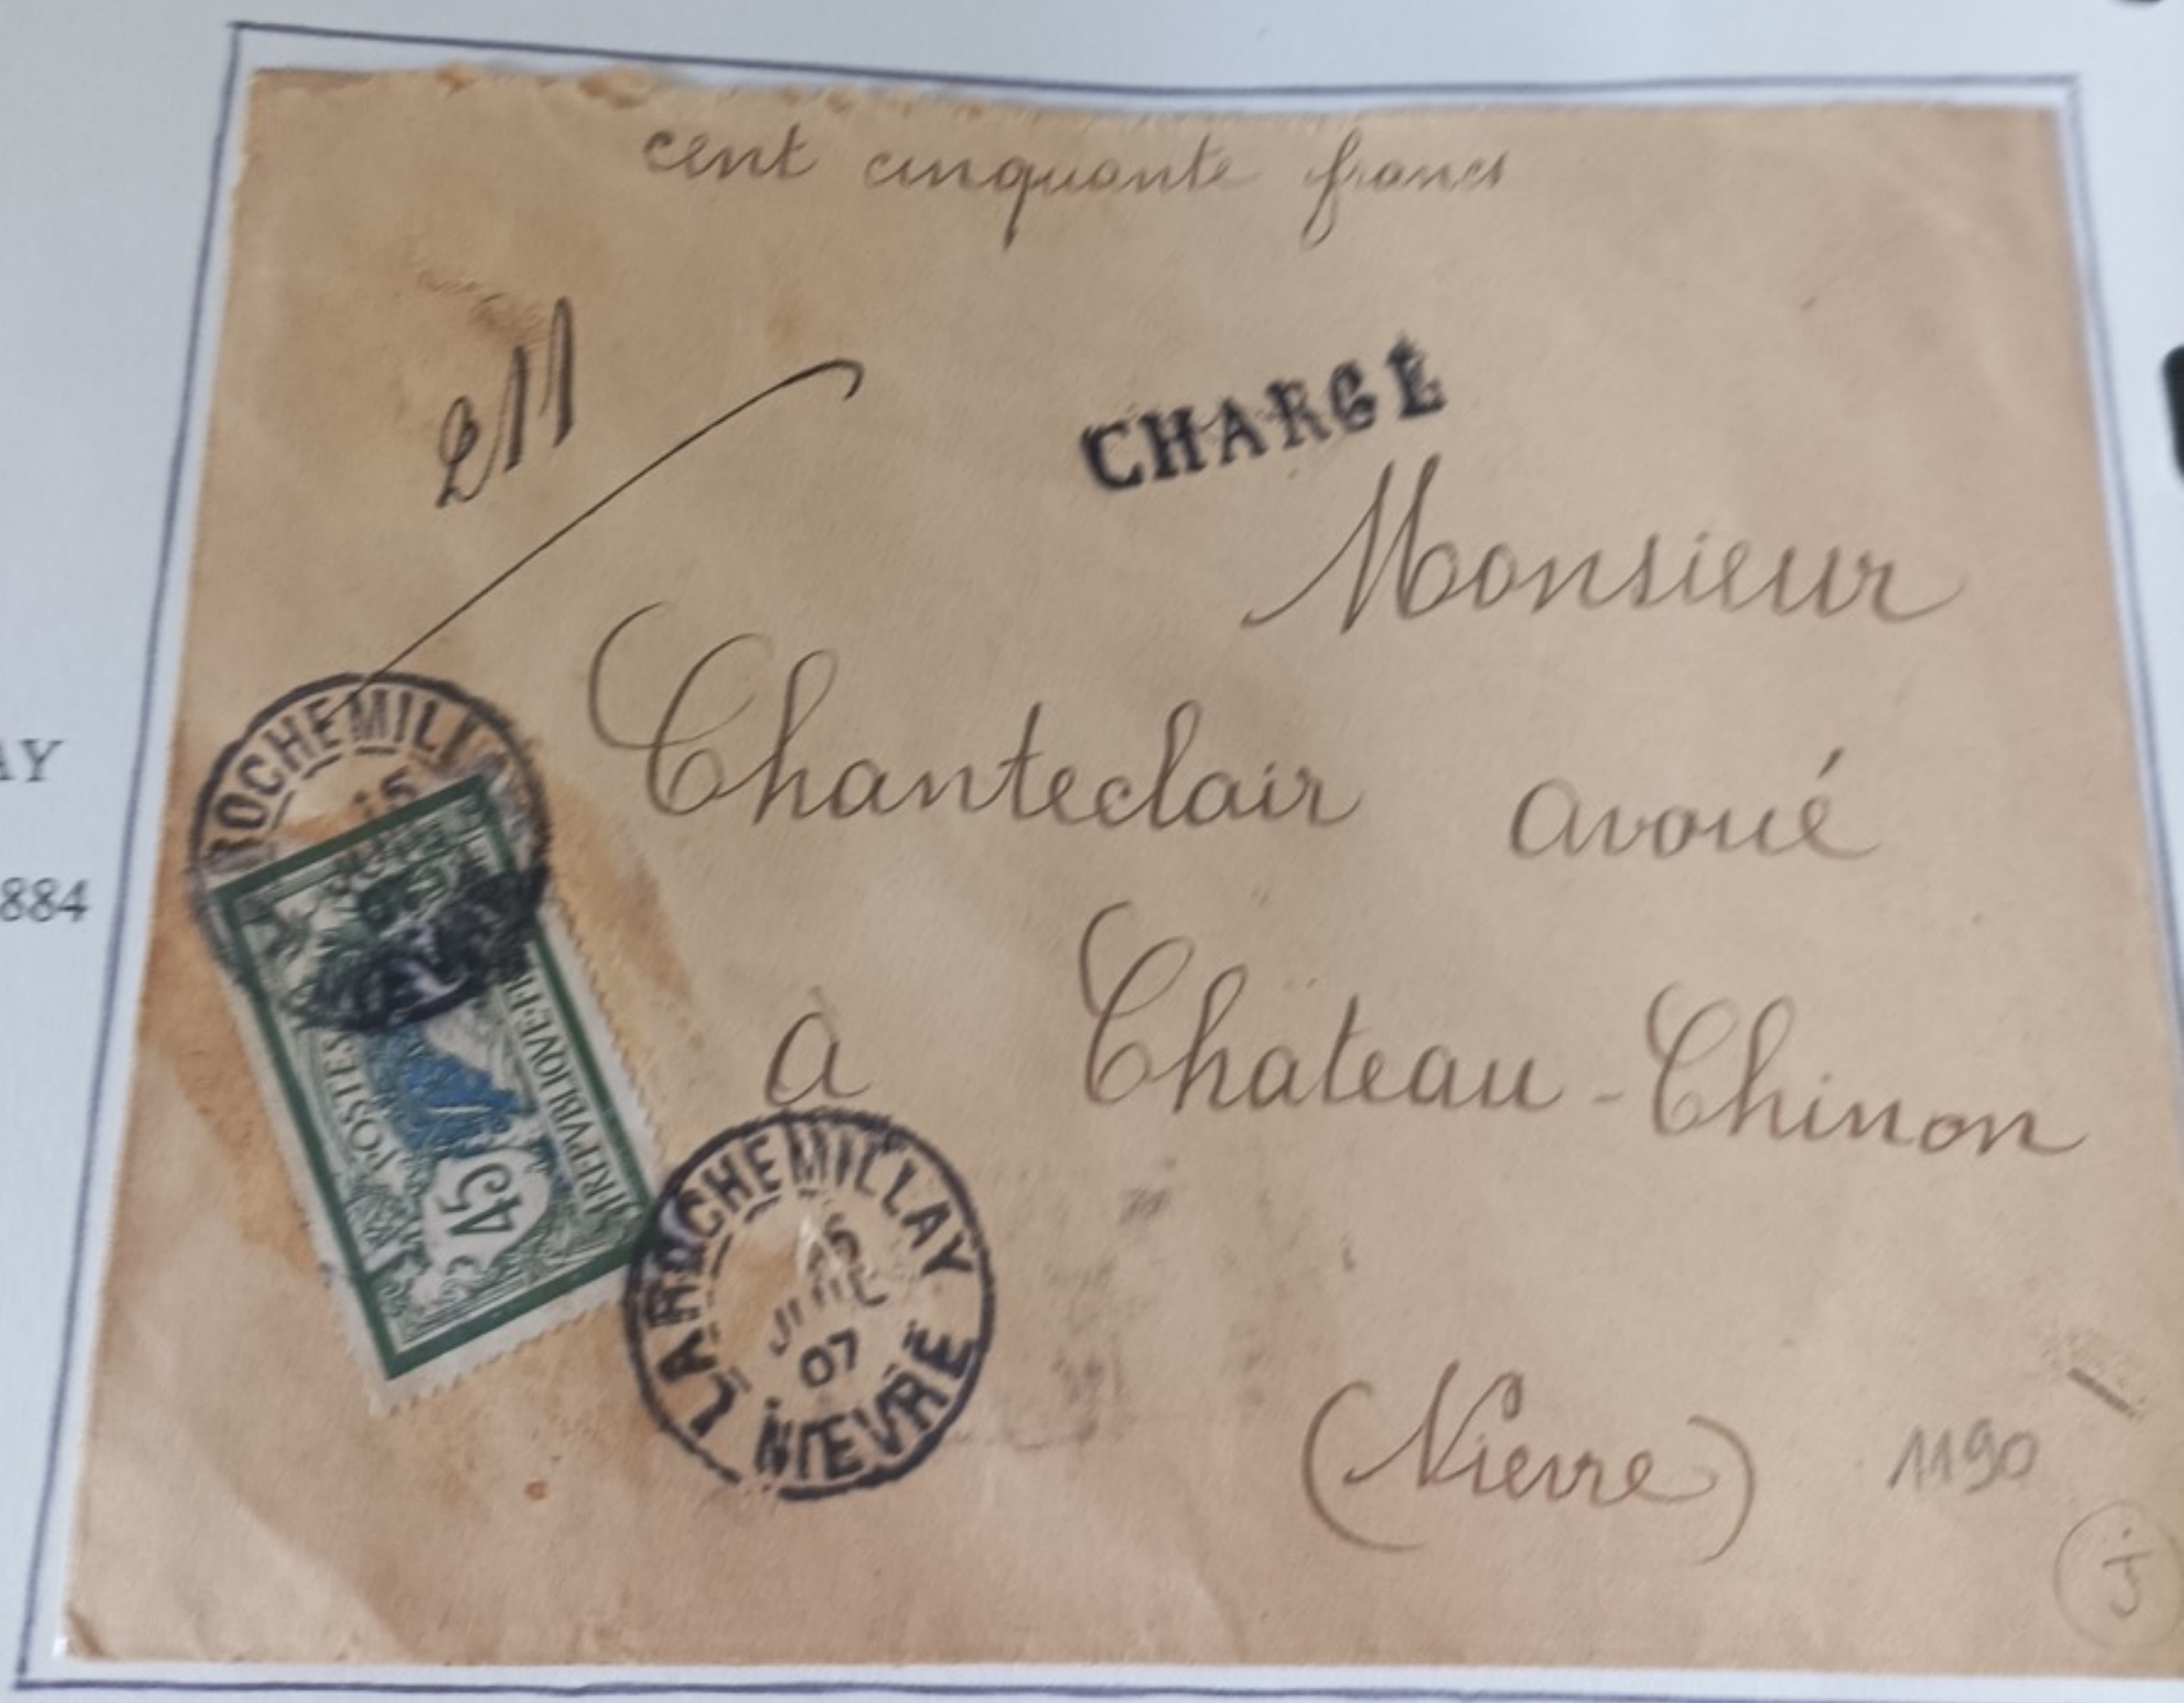 cent cinquante francs
211
CHARGÉ
Monsieur
Chanteclair avoué
à Chateau-Chinon
(Nievre)
1190
j
AY
884
ROCHEMILL
15
POSTES
REPVBLIQVE FR
45 c
LAROCHEMILLAY
15
JUIL
07
NIEVRE